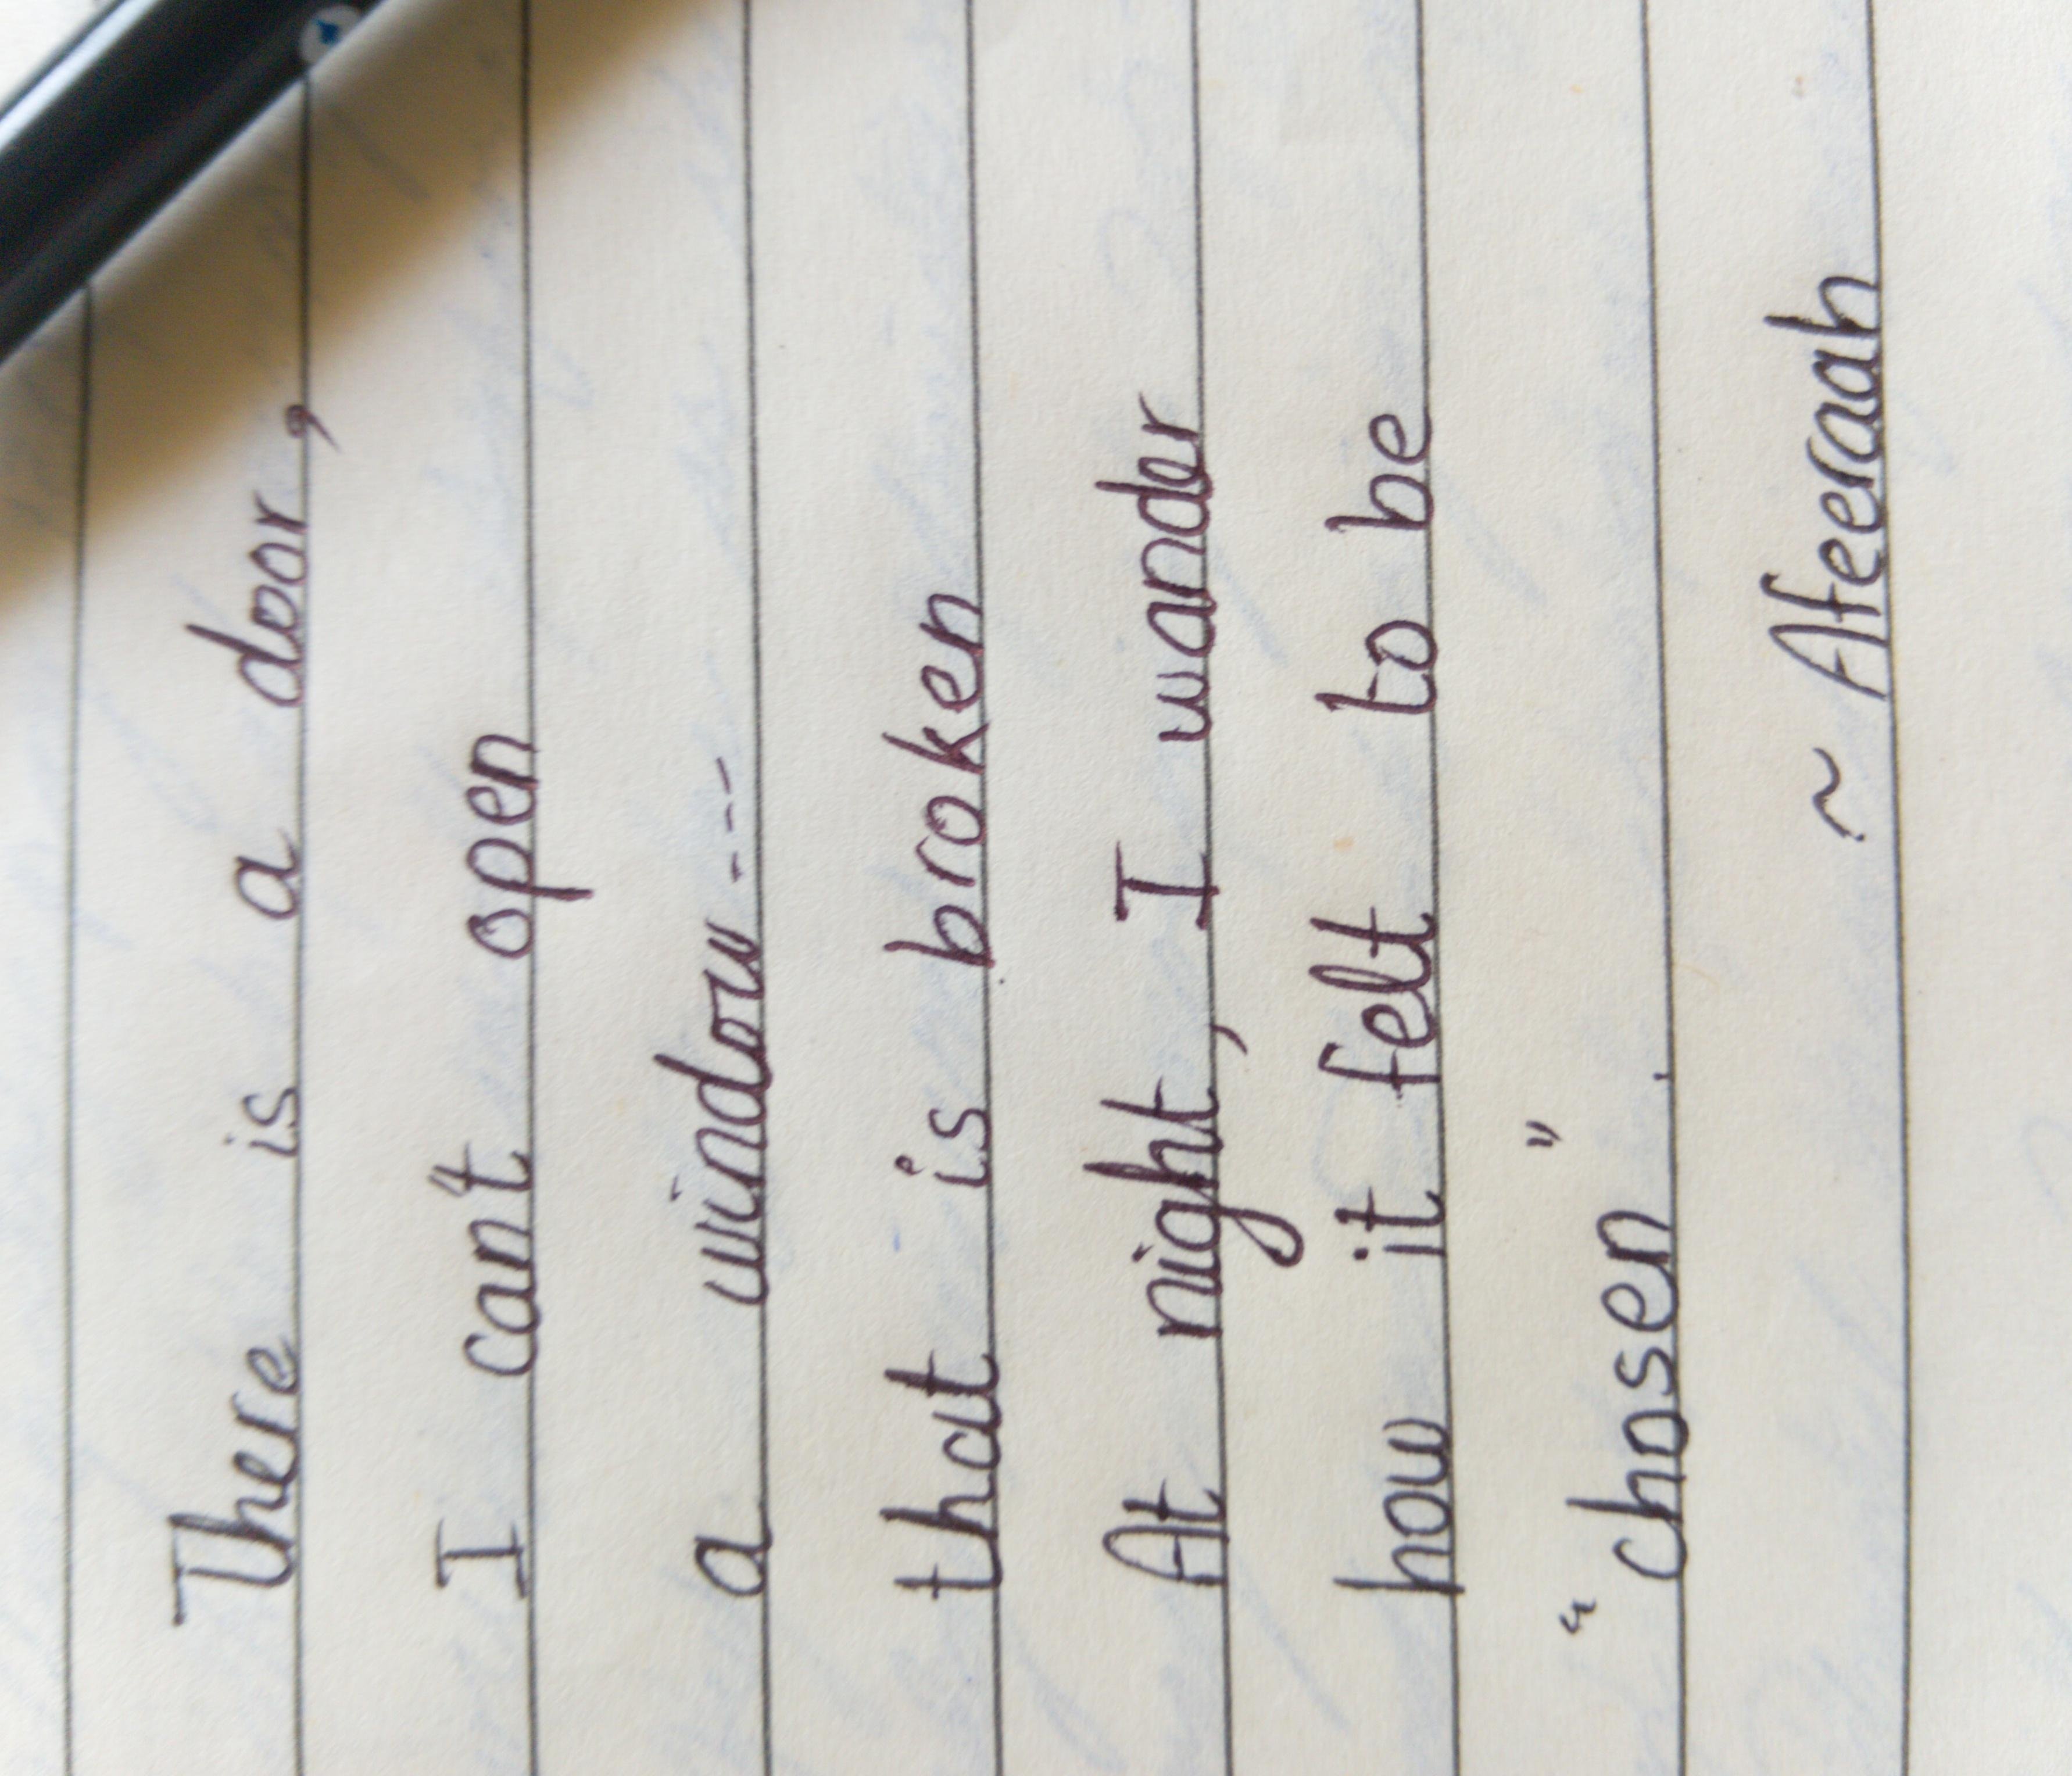 There is a door,
I can't open
a window ---
that is broken
At night, I wander
how it felt to be
"chosen".
~ Afeeraah